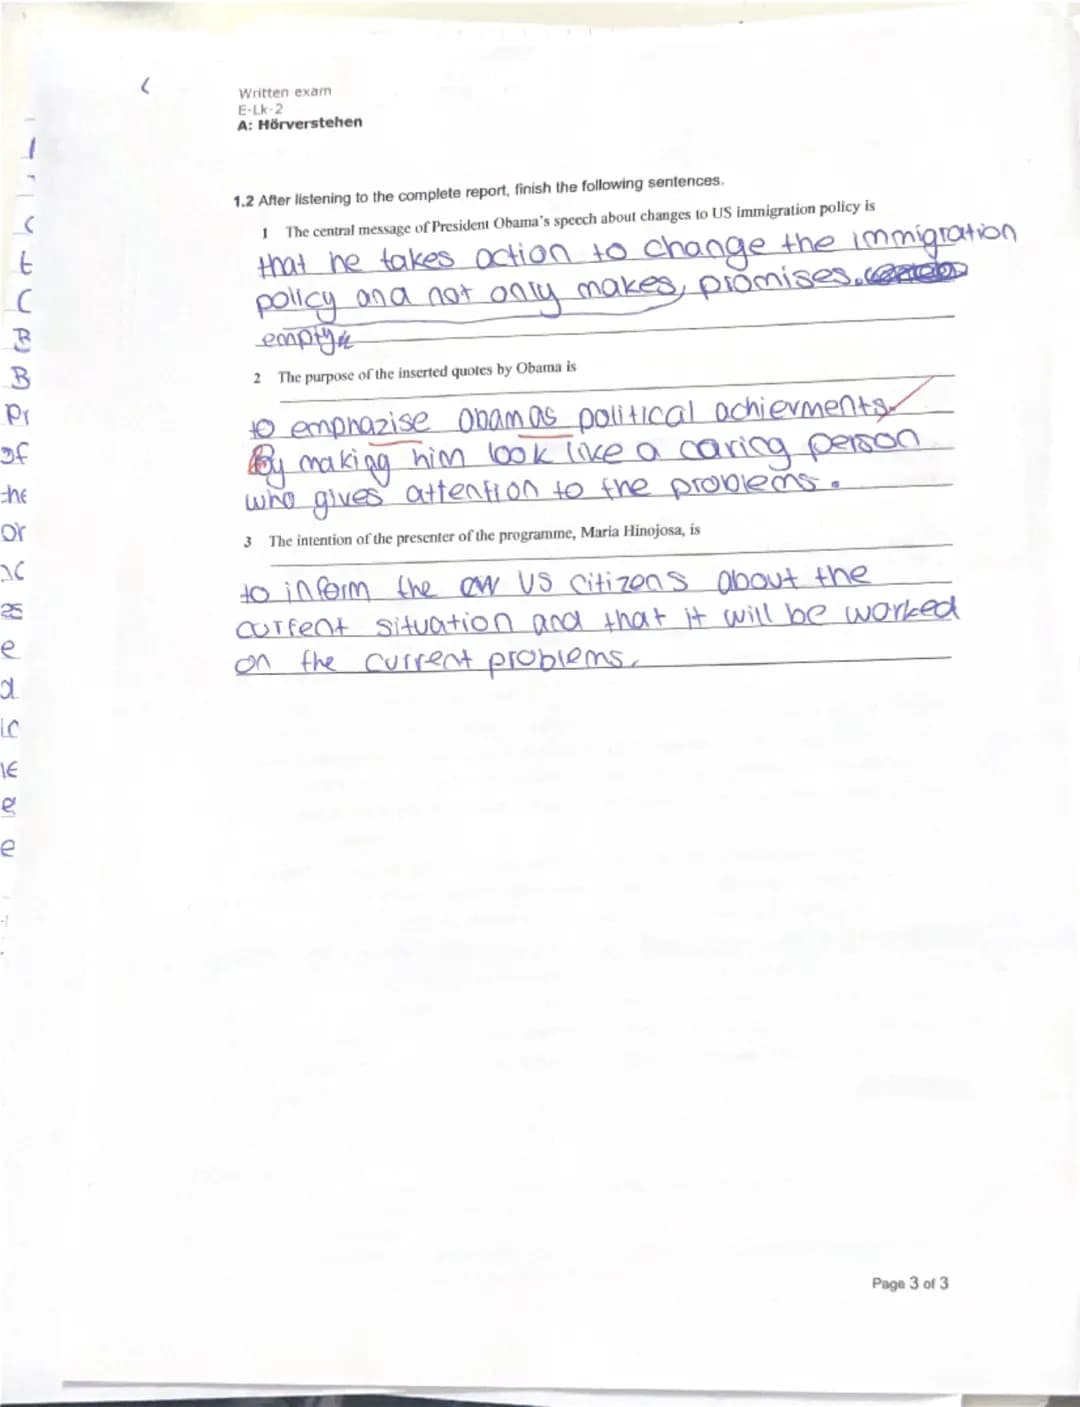 Written exam
E-Lk-2
A: Hörverstehen
1.2 After listening to the complete report, finish the following sentences.
1 The central message of President Obama's speech about changes to US immigration policy is
that he takes action to change the immigration
policy and not only makes promises.
empty
2 The purpose of the inserted quotes by Obama is
to emphazise Obamas political achievments
By making him look like a caring person
who gives attention to the problems.
3 The intention of the presenter of the programme, Maria Hinojosa, is
to inform the US citizens about the
current situation and that it will be worked
on the current problems.
Page 3 of 3